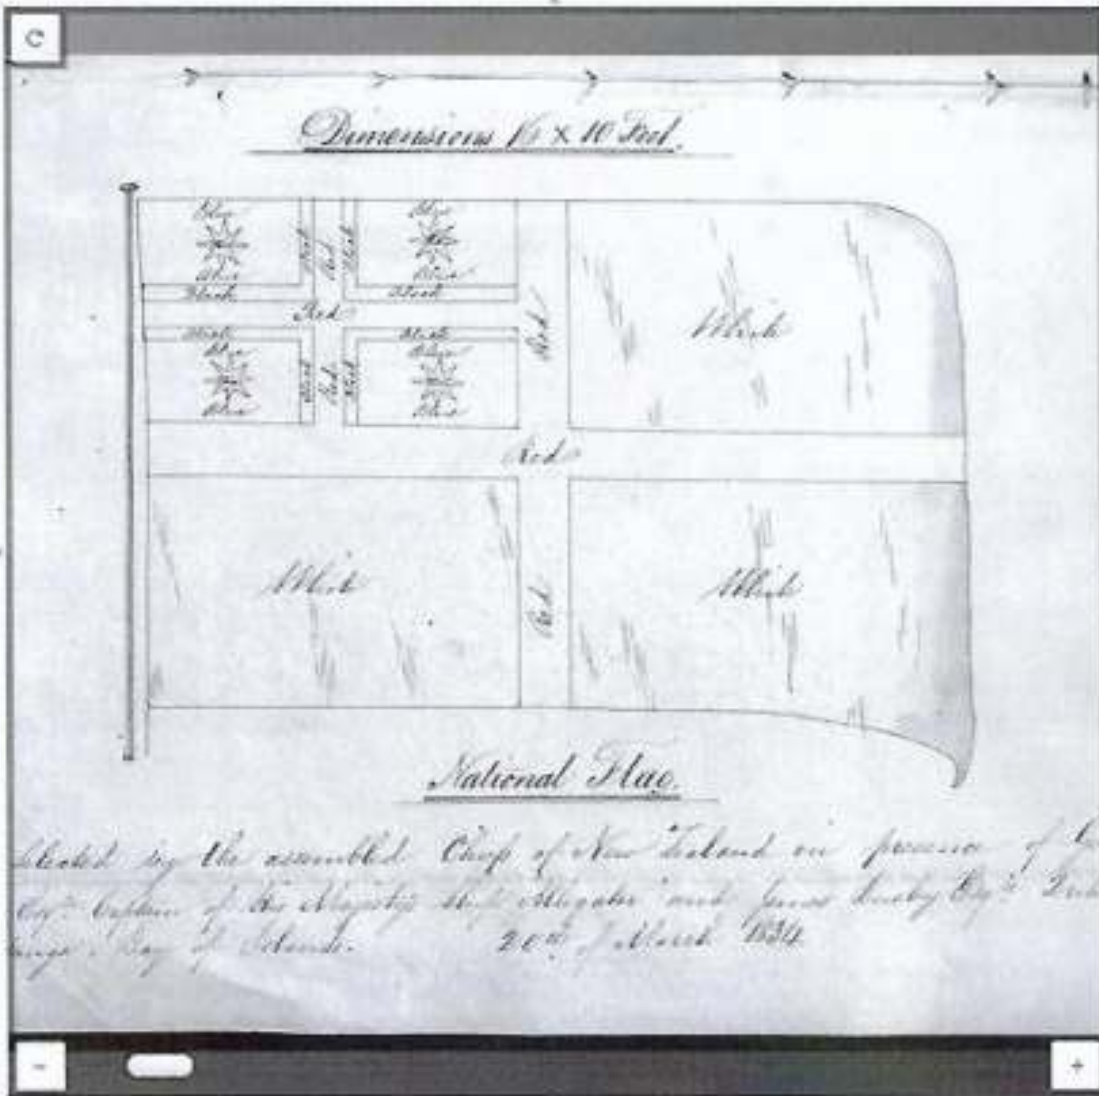 Dimensions 16 x 10 Feet.
Blue Blue
Blue Blue
Black Red Black
Black Black
Red
Black Black
Blue Blue
Black Red Black
Blue Blue
Red
White
Red
White
White
Red
National Flag.
Selected by the assembled Chiefs of New Zealand in presence of
Captain of His Majesty's Ship Alligator and James Busby Esqr.
Bay of Islands. 20th of March 1834